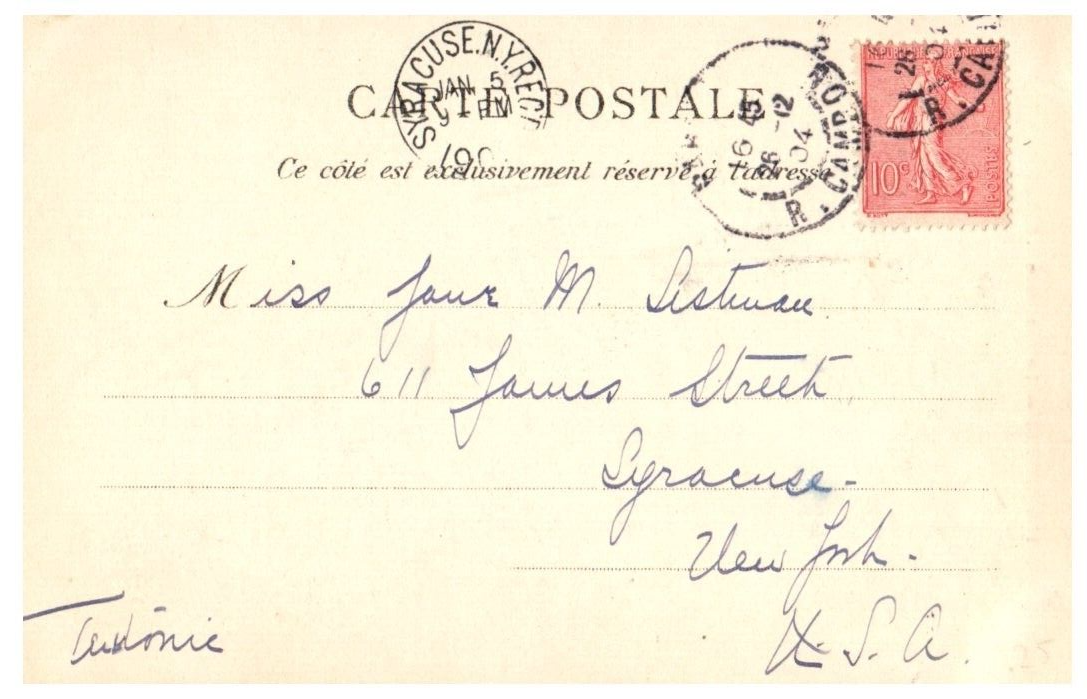 SYRACUSE. N.Y. REC'D
JAN 5
9 PM
190
CARTE POSTALE
Ce côté est exclusivement réservé à l'adresse
16 45
26 -12
04
R. CAMBO
RÉPUBLIQUE FRANÇAISE
10c
POSTES
26
R. CA
Miss Jane M.
611 James Street
Syracuse-
New York-
U.S.A.
Teutonic